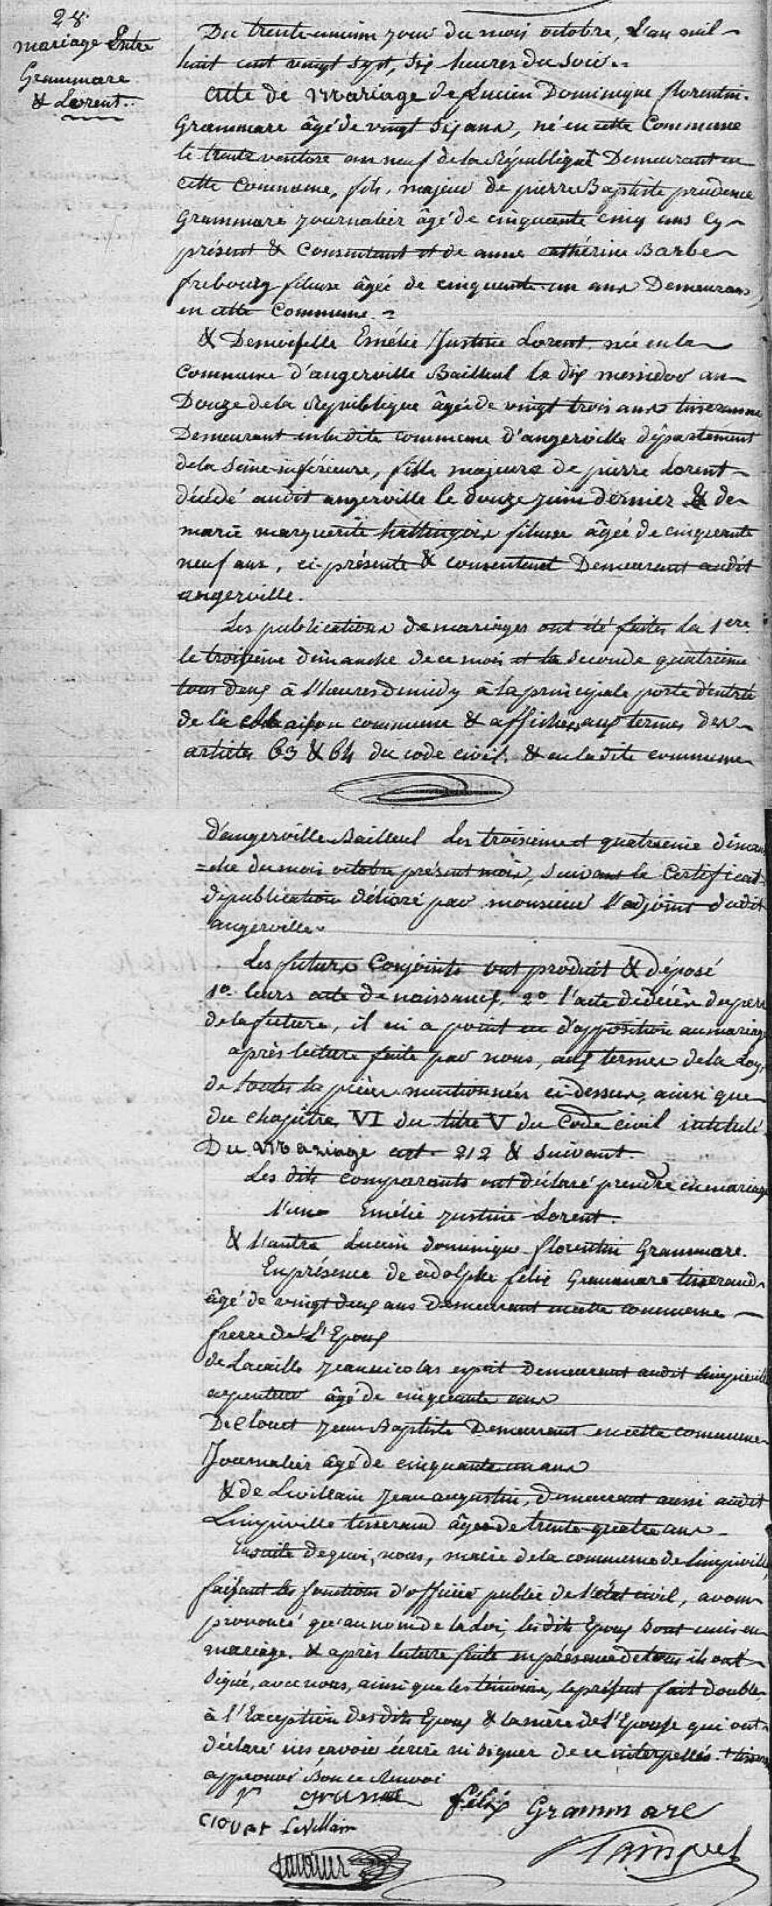 28.
mariage Entre
Grammare
& Lorent..
Du trente unieme jour du mois octobre, L'an mil
huit cent vingt sept, six heures du soir..
Acte de Mariage de Lucien Dominique florentin
Grammare âgé de vingt six ans, né en cette Commune
le trente ventôse an neuf de la République Demeurant en
cette Commune, fils majeur de pierre Baptiste prudence
Grammare journalier âgé de cinquante cinq ans cy
présent & Consentant et de anne cathérine Barbe
frebourg fileuse âgée de cinquante un ans Demeurans
en cette Commune.
& Demoiselle Emélie Justine Lorent née en la
Commune d'angerville Bailleul le dix messidor an
Douze de la République âgée de vingt trois ans tisseranne
Demeurant en la dite commune d'angerville département
de la Seine inférieure, fille majeure de pierre Lorent
décédé audit angerville le douze juin dernier & de
marie marguerite hattingois fileuse âgée de cinquante
neuf ans, ci-présente & consentant Demeurant audit
angerville.
Les publications de mariages ont été faites la 1ere
le troisième dimanche de ce mois et la seconde quatrieme
tous deux à l'heure de midy à la principale porte d'entrée
de la Maison commune & affichées aux termes des
articles 63 & 64 du code civil. & en la dite commune
d'angerville Bailleul les troisieme et quatrieme diman
=che du mois octobre présent mois, suivant le Certificat
de publication délivré par monsieur l'adjoint dudit
angerville.
Les futurs Conjoints ont produit & déposé
1º leurs acte de naissances, 2º l'acte de décès du pere
de la future, il ni a point eu d'opposition au mariage
après lecture faite par nous, aux termes de la Loy,
de toutes les pièces mentionnées ci-dessus, ainsi que
du chapitre VI du titre V du Code civil intitulé
Du Mariage art. 212 & suivant.
Les dits comparants ont déclaré prendre en mariage
l'une Emélie Justine Lorent.
& l'autre Lucien dominique florentin Grammare.
En présence de adolphe félix Grammare tisserand
âgé de vingt deux ans demeurant en cette commune
frere de L'Epoux
de Lacaille Jean nicolas esprit Demeurant audit limpiville
arpenteur âgé de cinquante ans
De Clouet Jean Baptiste Demeurant en cette commune
Journalier âgé de cinquante un ans
& de Levillain Jean augustin, demeurant aussi audit
Limpiville tisserand âgé de trente quatre ans
Ensuite de quoi, nous, maire de la commune de limpiville
faisant les fonctions d'officier public de l'état civil, avons
prononcé qu'au nom de la loi, les dits Epoux sont unis en
mariage. & après lecture faite en présence de tous ils ont
signé, avec nous, ainsi que les témoins, le présent fait double
à l'Exception des dits Epoux & la mère de l'Epouse qui ont
déclaré ne savoir écrire ni signer de ce interpellés.
approuvé Bon ce Renvoi
félix Grammare
clouet Levillain